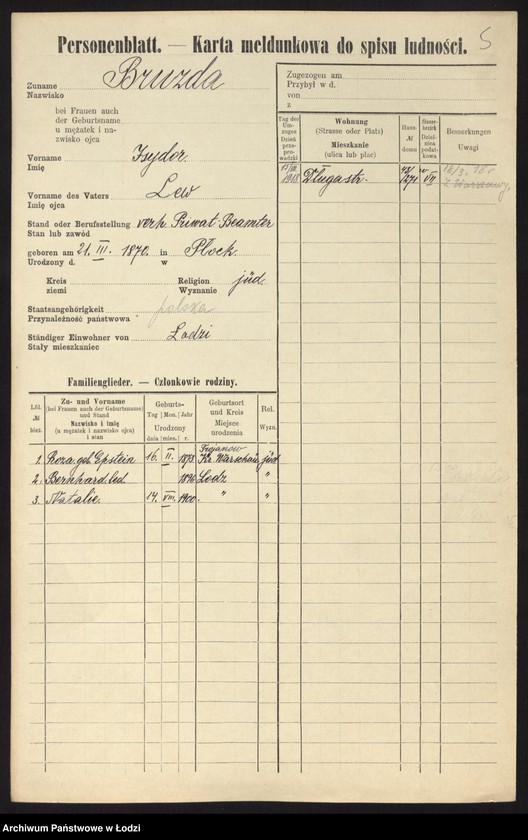 Personenblatt. — Karta meldunkowa do spisu ludności.
5
Zuname
Nazwisko
Bruzda
bei Frauen auch
der Geburtsname
u mężatek i na-
zwisko ojca
Vorname
Imię
Isydor.
Vorname des Vaters
Imię ojca
Lew
Stand oder Berufsstellung
Stan lub zawód
verh. Privat Beamter
geboren am 21. III. 1870. in Płock.
Urodzony d. w
Kreis
ziemi
Religion
Wyznanie
jüd.
Staatsangehörigkeit
Przynależność państwowa
polska
Ständiger Einwohner von
Stały mieszkaniec
Lodzi
Zugezogen am
Przybył w d.
von
z
Tag des Um-zuges
Dzień prze-pro-wadzki
Wohnung
(Strasse oder Platz)
Mieszkanie
(ulica lub plac)
Haus-№
domu
Steuer-bezirk
Dziel-nica podat-kowa
Bemerkungen
Uwagi
1918 Długa str. VII
Z Warszawy,
Familienglieder. — Członkowie rodziny.
Lfd.
№
bież.
Zu- und Vorname
(bei Frauen auch der Geburtsname)
und Stand
Nazwisko i imię
(u mężatek i nazwisko ojca)
i stan
Geburts-
Tag Mon. Jahr
Urodzony
dnia mies. r.
Geburtsort
und Kreis
Miejsce
urodzenia
Rel.
Wyzn.
1. Roza geb. Epstein 16. II. 1873 Kr. Warschau jüd
2. Bernhard. led. 1896 Lodz "
3. Natalie. 14. VIII. 1900. " "
Archiwum Państwowe w Łodzi